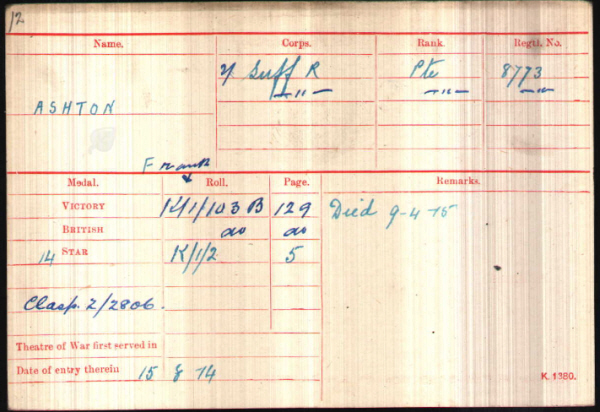 12
Name. Corps. Rank. Regtl. No.
Suff R Pte 8773
—"— —"— —"—
ASHTON
Frank
Medal. Roll. Page. Remarks.
VICTORY K/1/103 B 129 Died 9-4-15
BRITISH do do
14 STAR K/1/2 5
Clasp. Z/2806.
Theatre of War first served in
Date of entry therein 15 8 14
K. 1380.